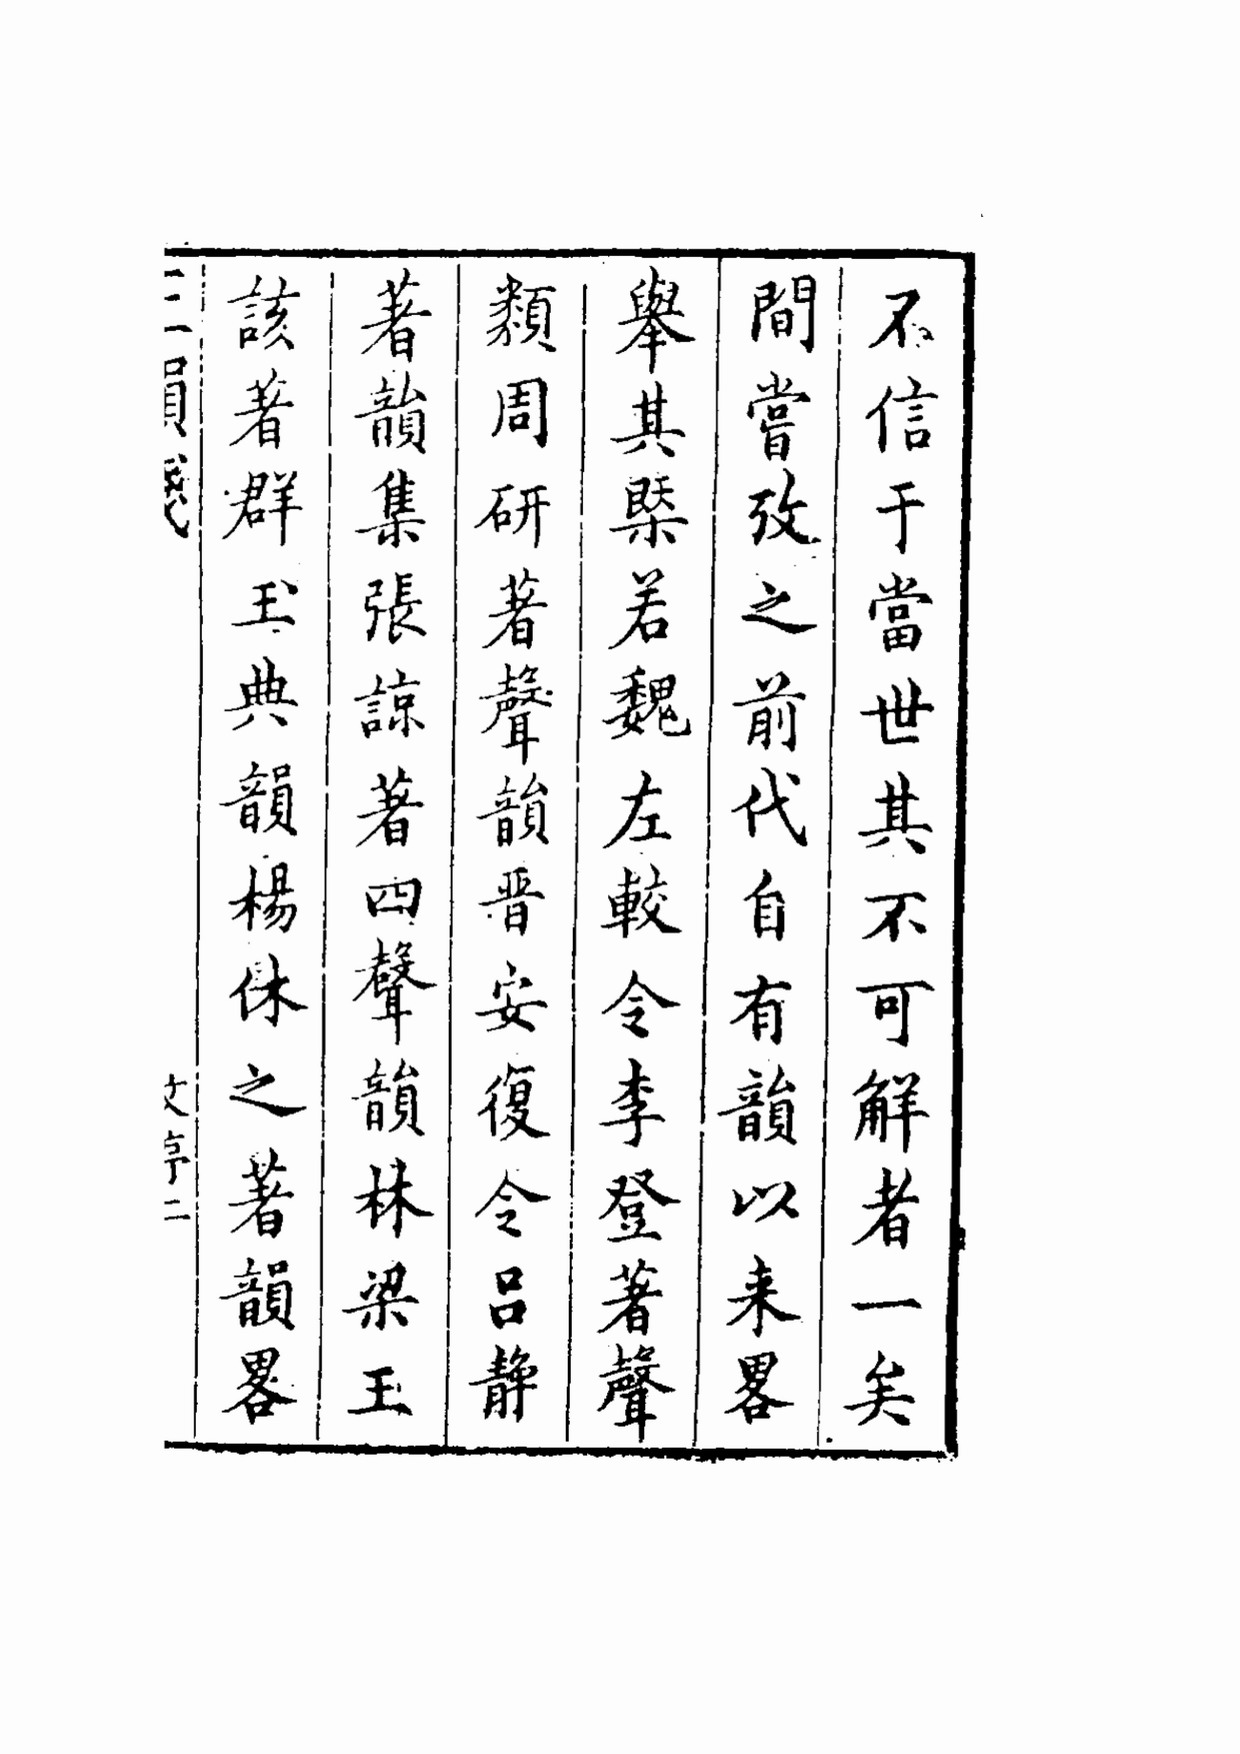 不信于當世其不可解者一矣
間嘗攷之前代自有韻以来畧
舉其槩若魏左較令李登著聲
類周研著聲韻晋安復令吕静
著韻集張諒著四聲韻林梁王
該著群玉典韻楊休之著韻畧
韻箋
文序二